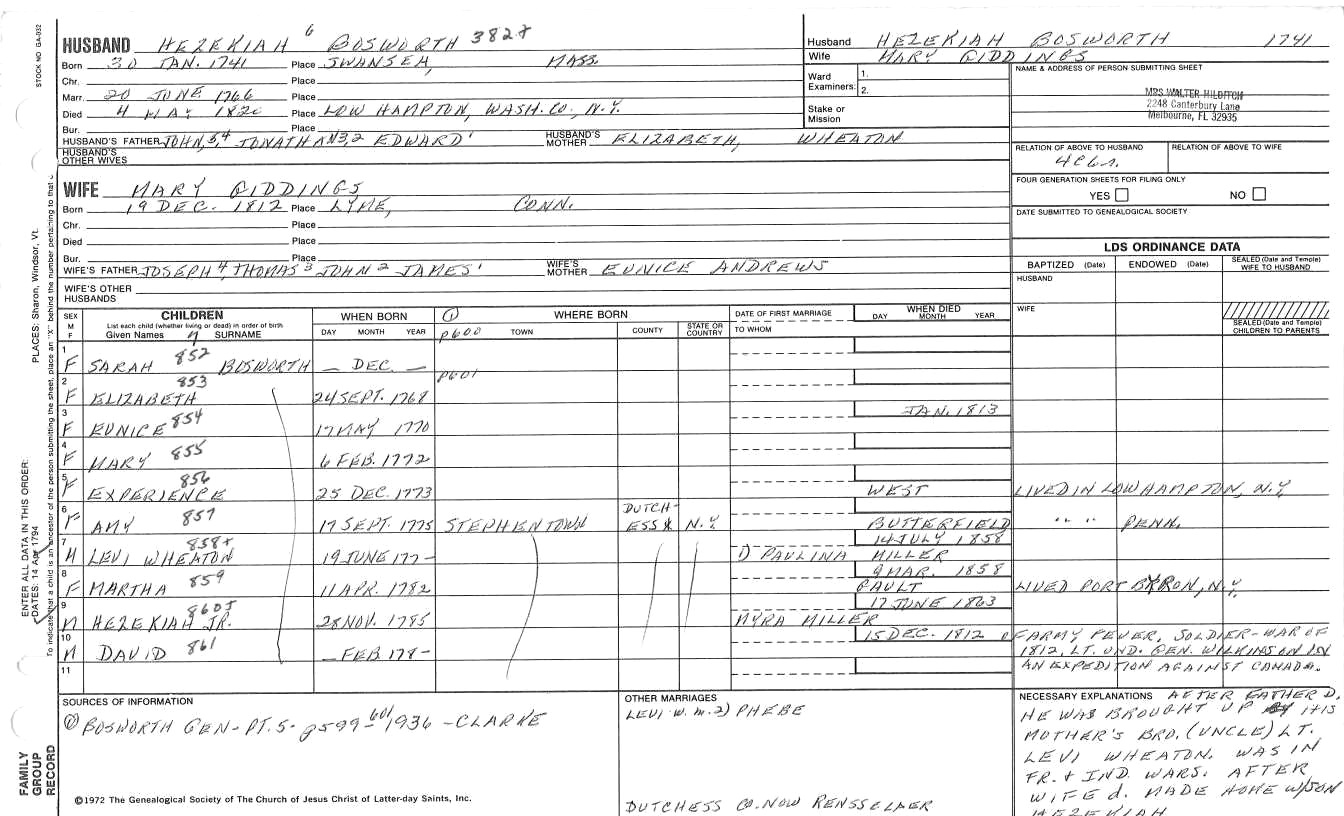 STOCK NO GA-032
HUSBAND HEZEKIAH 6 BOSWORTH 382+
Born 30 JAN. 1741 Place SWANSEA, MASS.
Chr. Place
Marr. 20 JUNE 1766 Place
Died 4 MAY 1820 Place LOW HAMPTON, WASH. CO, N.Y.
Bur. Place
HUSBAND'S FATHER JOHN, 5,4 JONATHAN 3,2 EDWARD 1 HUSBAND'S MOTHER ELIZABETH, WHEATON
HUSBAND'S OTHER WIVES
Husband HEZEKIAH BOSWORTH 1741
Wife MARY GIDDINGS
Ward Examiners: 1.
2.
Stake or Mission
NAME & ADDRESS OF PERSON SUBMITTING SHEET
MRS WALTER HILDITCH
2248 Canterbury Lane
Melbourne, FL 32935
RELATION OF ABOVE TO HUSBAND RELATION OF ABOVE TO WIFE
FOUR GENERATION SHEETS FOR FILING ONLY
YES NO
DATE SUBMITTED TO GENEALOGICAL SOCIETY
WIFE MARY GIDDINGS
Born 19 DEC. 1812 Place LYME, CONN.
Chr. Place
Died Place
Bur. Place
WIFE'S FATHER JOSEPH 4, THOMAS 3 JOHN 2 JAMES 1 WIFE'S MOTHER EUNICE ANDREWS
WIFE'S OTHER HUSBANDS
LDS ORDINANCE DATA
BAPTIZED (Date) ENDOWED (Date) SEALED (Date and Temple) WIFE TO HUSBAND
HUSBAND
WIFE
SEALED (Date and Temple) CHILDREN TO PARENTS
SEX M F
CHILDREN
List each child (whether living or dead) in order of birth
Given Names 7 SURNAME
WHEN BORN
DAY MONTH YEAR
① WHERE BORN
P600 TOWN COUNTY STATE OR COUNTRY
DATE OF FIRST MARRIAGE
TO WHOM
WHEN DIED
DAY MONTH YEAR
1 F SARAH 852 BOSWORTH — DEC. —
P601
2 F ELIZABETH 853 24 SEPT. 1768
3 F EUNICE 854 17 MAY 1770 JAN. 1813
4 F MARY 855 6 FEB. 1772
5 F EXPERIENCE 856 25 DEC. 1773 WEST LIVED IN LOW HAMPTON, N.Y.
6 F AMY 857 17 SEPT. 1775 STEPHENTOWN DUTCH-ESS N.Y. BUTTERFIELD " " PENN.
7 M LEVI WHEATON 858+ 19 JUNE 177- 1) PAULINA MILLER 14 JULY 1858
8 F MARTHA 859 11 APR. 1782 GAULT 9 MAR. 1858 LIVED PORT BYRON, N.Y.
9 M HEZEKIAH JR. 860 28 NOV. 1785 MYRA MILLER 17 JUNE 1863
10 M DAVID 861 — FEB 178- 15 DEC. 1812 OF ARMY FEVER, SOLDIER-WAR OF
1812, LT. UND. GEN. WILKINSON IN
AN EXPEDITION AGAINST CANADA.
11
SOURCES OF INFORMATION
① BOSWORTH GEN- PT. 5- p599-601/1936 -CLARKE
OTHER MARRIAGES
LEVI W. m. 2) PHEBE
DUTCHESS CO. NOW RENSSELAER
NECESSARY EXPLANATIONS AFTER FATHER D.
HE WAS BROUGHT UP BY HIS
MOTHER'S BRO. (UNCLE) LT.
LEVI WHEATON. WAS IN
FR. + IND. WARS. AFTER
WIFE d. MADE HOME W/SON
HEZEKIAH
©1972 The Genealogical Society of The Church of Jesus Christ of Latter-day Saints, Inc.
FAMILY GROUP RECORD
ENTER ALL DATA IN THIS ORDER:
DATES: 14 Apr 1794
PLACES: Sharon, Windsor, Vt.
To indicate that a child is an ancestor of the person submitting the sheet, place an "X" behind the number pertaining to that